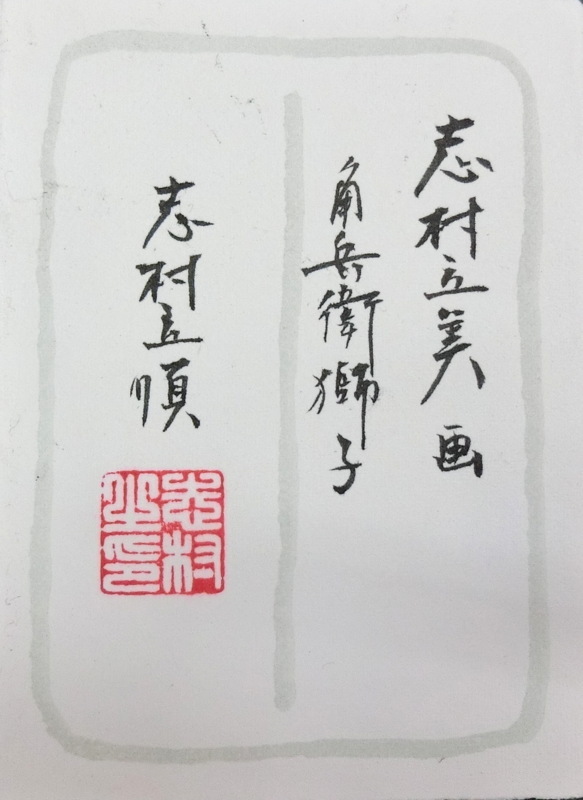 志村立美画
角兵衛獅子
志村立順
志村之印